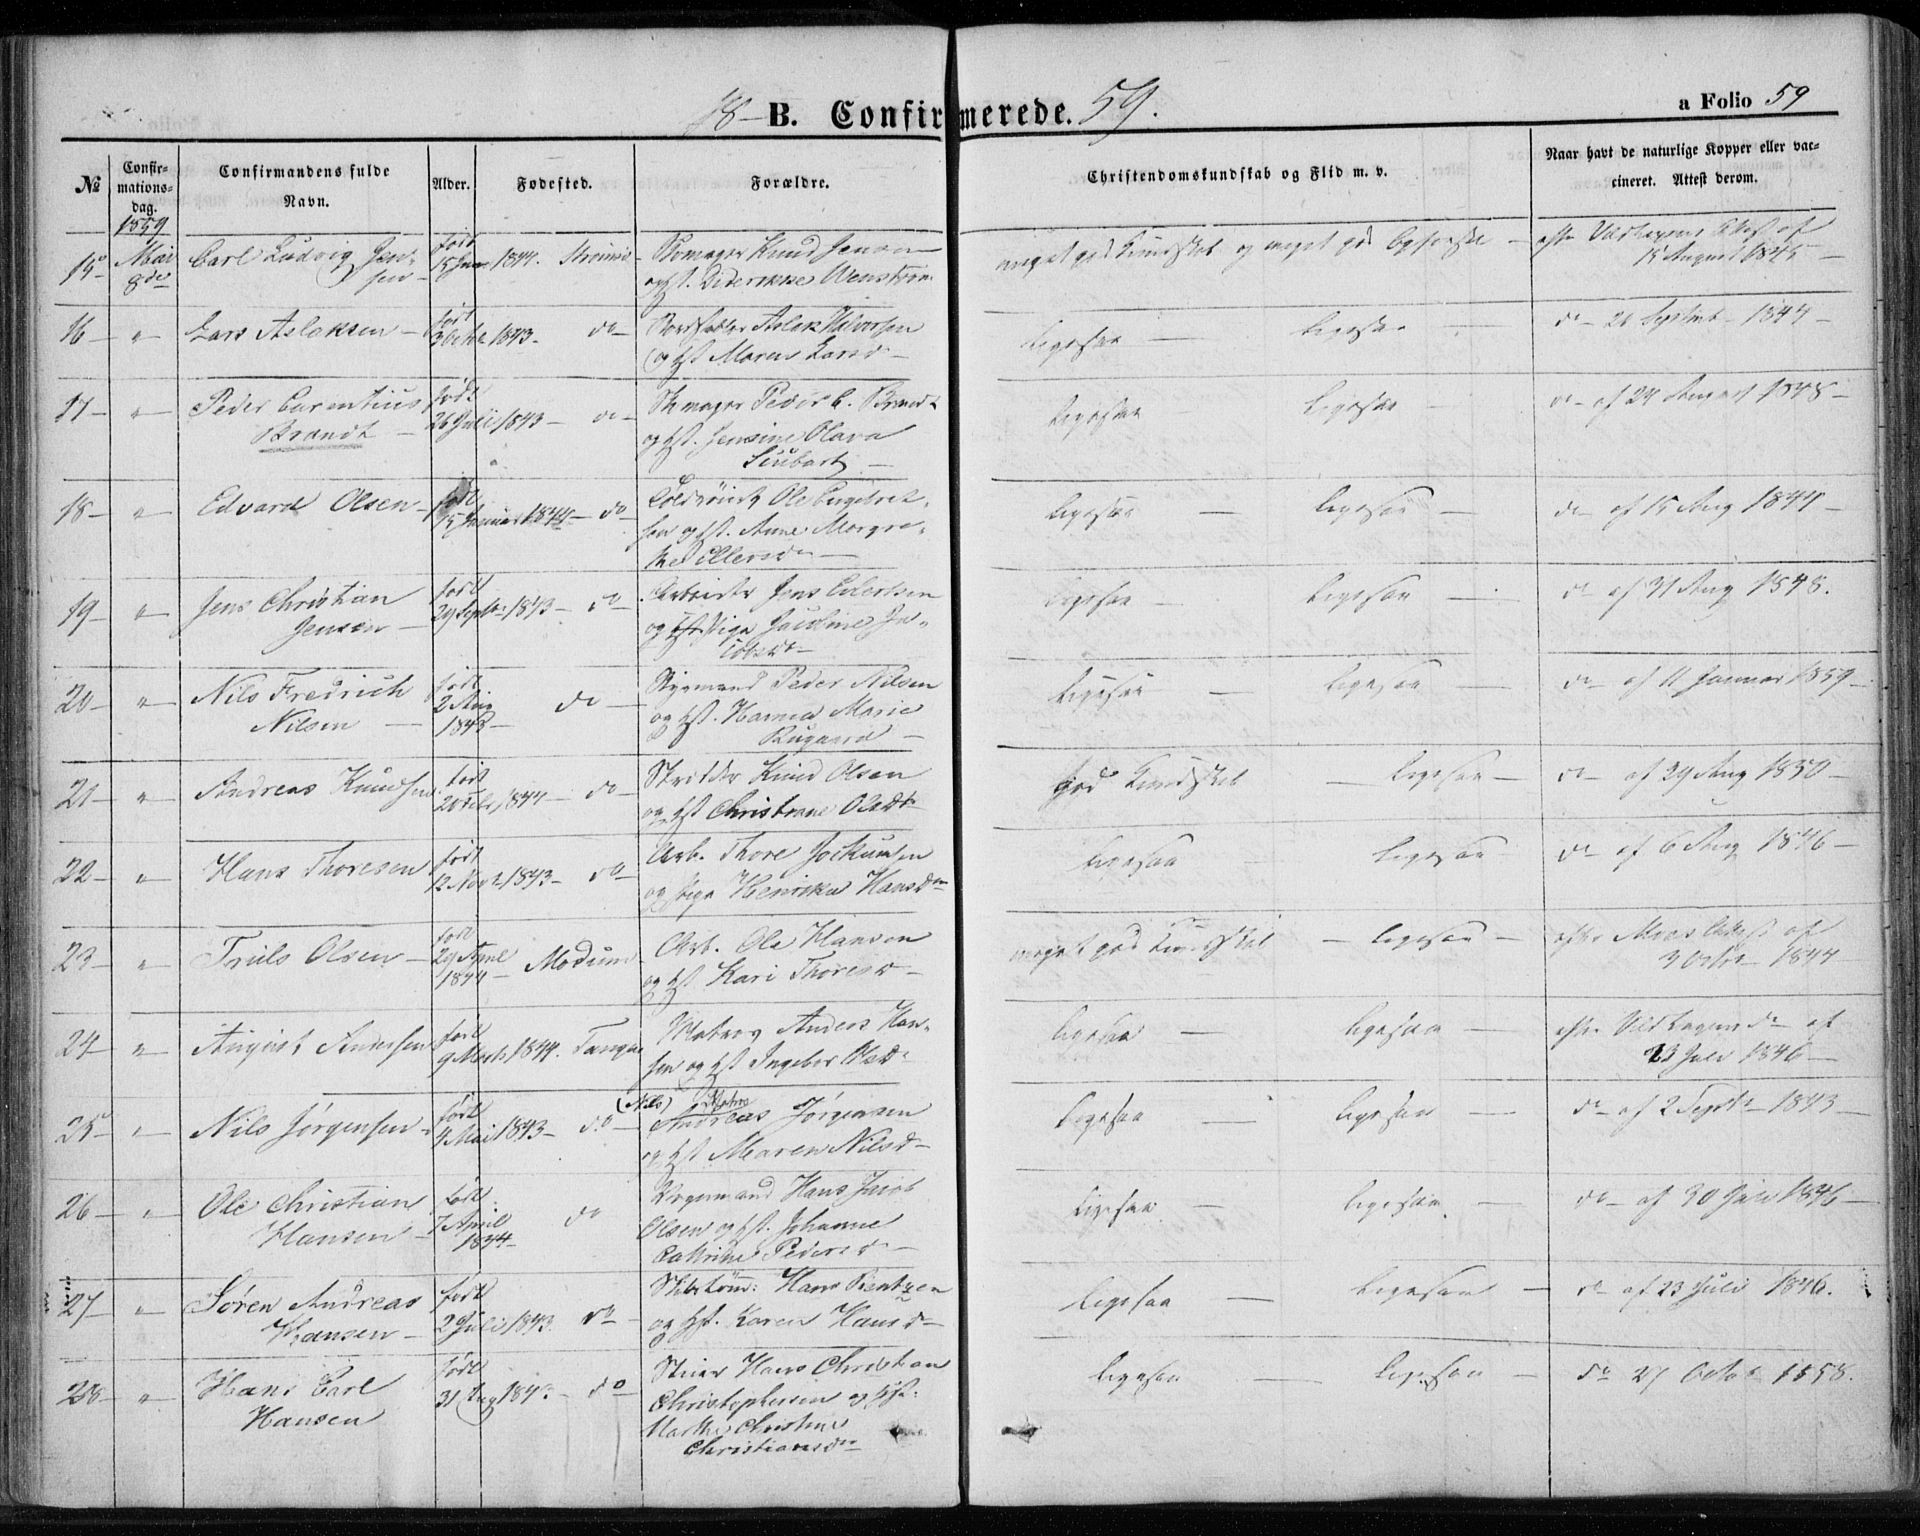 18- B. Confirmerede. 59.
a Folio 59
№
Confir-
mations-
dag.
Confirmandens fulde
Navn.
Alder.
Fødested.
Forældre.
Christendomskundskab og Flid m. v.
Naar havt de naturlige Kopper eller vac-
cineret. Attest derom.
1859
15 Mai 8de Carl Ludvig Jen-
sen
født
15 1844. Strømsø
Skomager Knud Jensen
og Hst. Diderikke
meget god Kundskab og meget god Opførsel
efter Attest af
15 August 1845
16 " Lars Aslaksen
født
1843 do
Aslak Halvorsen
og Hst Maren Larsd
Ligesaa Ligesaa
do 26 Septemb 1844
17 " Peder Carentius
Brandt
født
26 Juli 1843 do
Skomager Peder C. Brandt
og Hst. Jensine Olava
Ligesaa Ligesaa
do af 24 August 1848
18 " Edvard Olsen
født
15 Januar 1844 do
Ole Engebret-
sen og Hst. Anne Margre-
the Ellersd
Ligesaa Ligesaa
do af 15 Aug 1844
19 " Jens Christian
Jensen
født
29 Septbr 1843 do
Arbeider Jens Eilertsen
og Pige Pauline Ja-
cobsd
Ligesaa Ligesaa
do af 31 Aug 1848.
20 " Nils Fredrich
Nilsen
født
2 Aug
1843 do
Bygmand Peder Nilsen
og Hst. Hanna Marie
Ligesaa Ligesaa
do af 11 Januar 1859
21 " Andreas Knudsen
født
1844 do
Skrædder Knud Olsen
og Hst Christiane Olsdtr
god Kundskab Ligesaa
do af 29 Aug 1850
22 " Hans Thoresen
født
12 Novb. 1843 do
Arb. Thore Jockumsen
og Pige Henrikka Hansdtr
Ligesaa Ligesaa
do af 6 Aug 1846
23 " Truls Olsen
født
29 April
1844 Modum
Arb. Ole Hansen
og Hst Kari Thoresd
meget god Kundskab Ligesaa
efter Moes Attest af
3 Octbr 1844
24 " August Andersen
født
9 Marts 1844. Tangen
Matros Anders Han-
sen og Hst Ingebor Olsd
Ligesaa Ligesaa
efter do af
23 Juli 1846
25 " Nils Jørgensen
født
4 Mai 1843 do
(Nils) Matros
Andreas Jørgensen
og Hst Maren Nilsd
Ligesaa Ligesaa
do af 2 Septbr 1843
26 " Ole Christian
Hansen
født
7 April
1844 do
Hans Jacob
Olsen og Hst. Johanne
Cathrine Pedersd
Ligesaa Ligesaa
do af 30 Juli 1846
27 " Søren Andreas
Hansen
født
2 Juli 1843. do
Skibstøm: Hans Bentzen
og Hst. Karen Hansd
Ligesaa Ligesaa
do af 23 Juli 1846.
28 " Hans Carl
Hansen
født
31 Aug 1843 do
Hans Christian
Christophersen og Hst.
Marthe Christine
Christiansdtr
Ligesaa Ligesaa
do 27 Octob 1858.